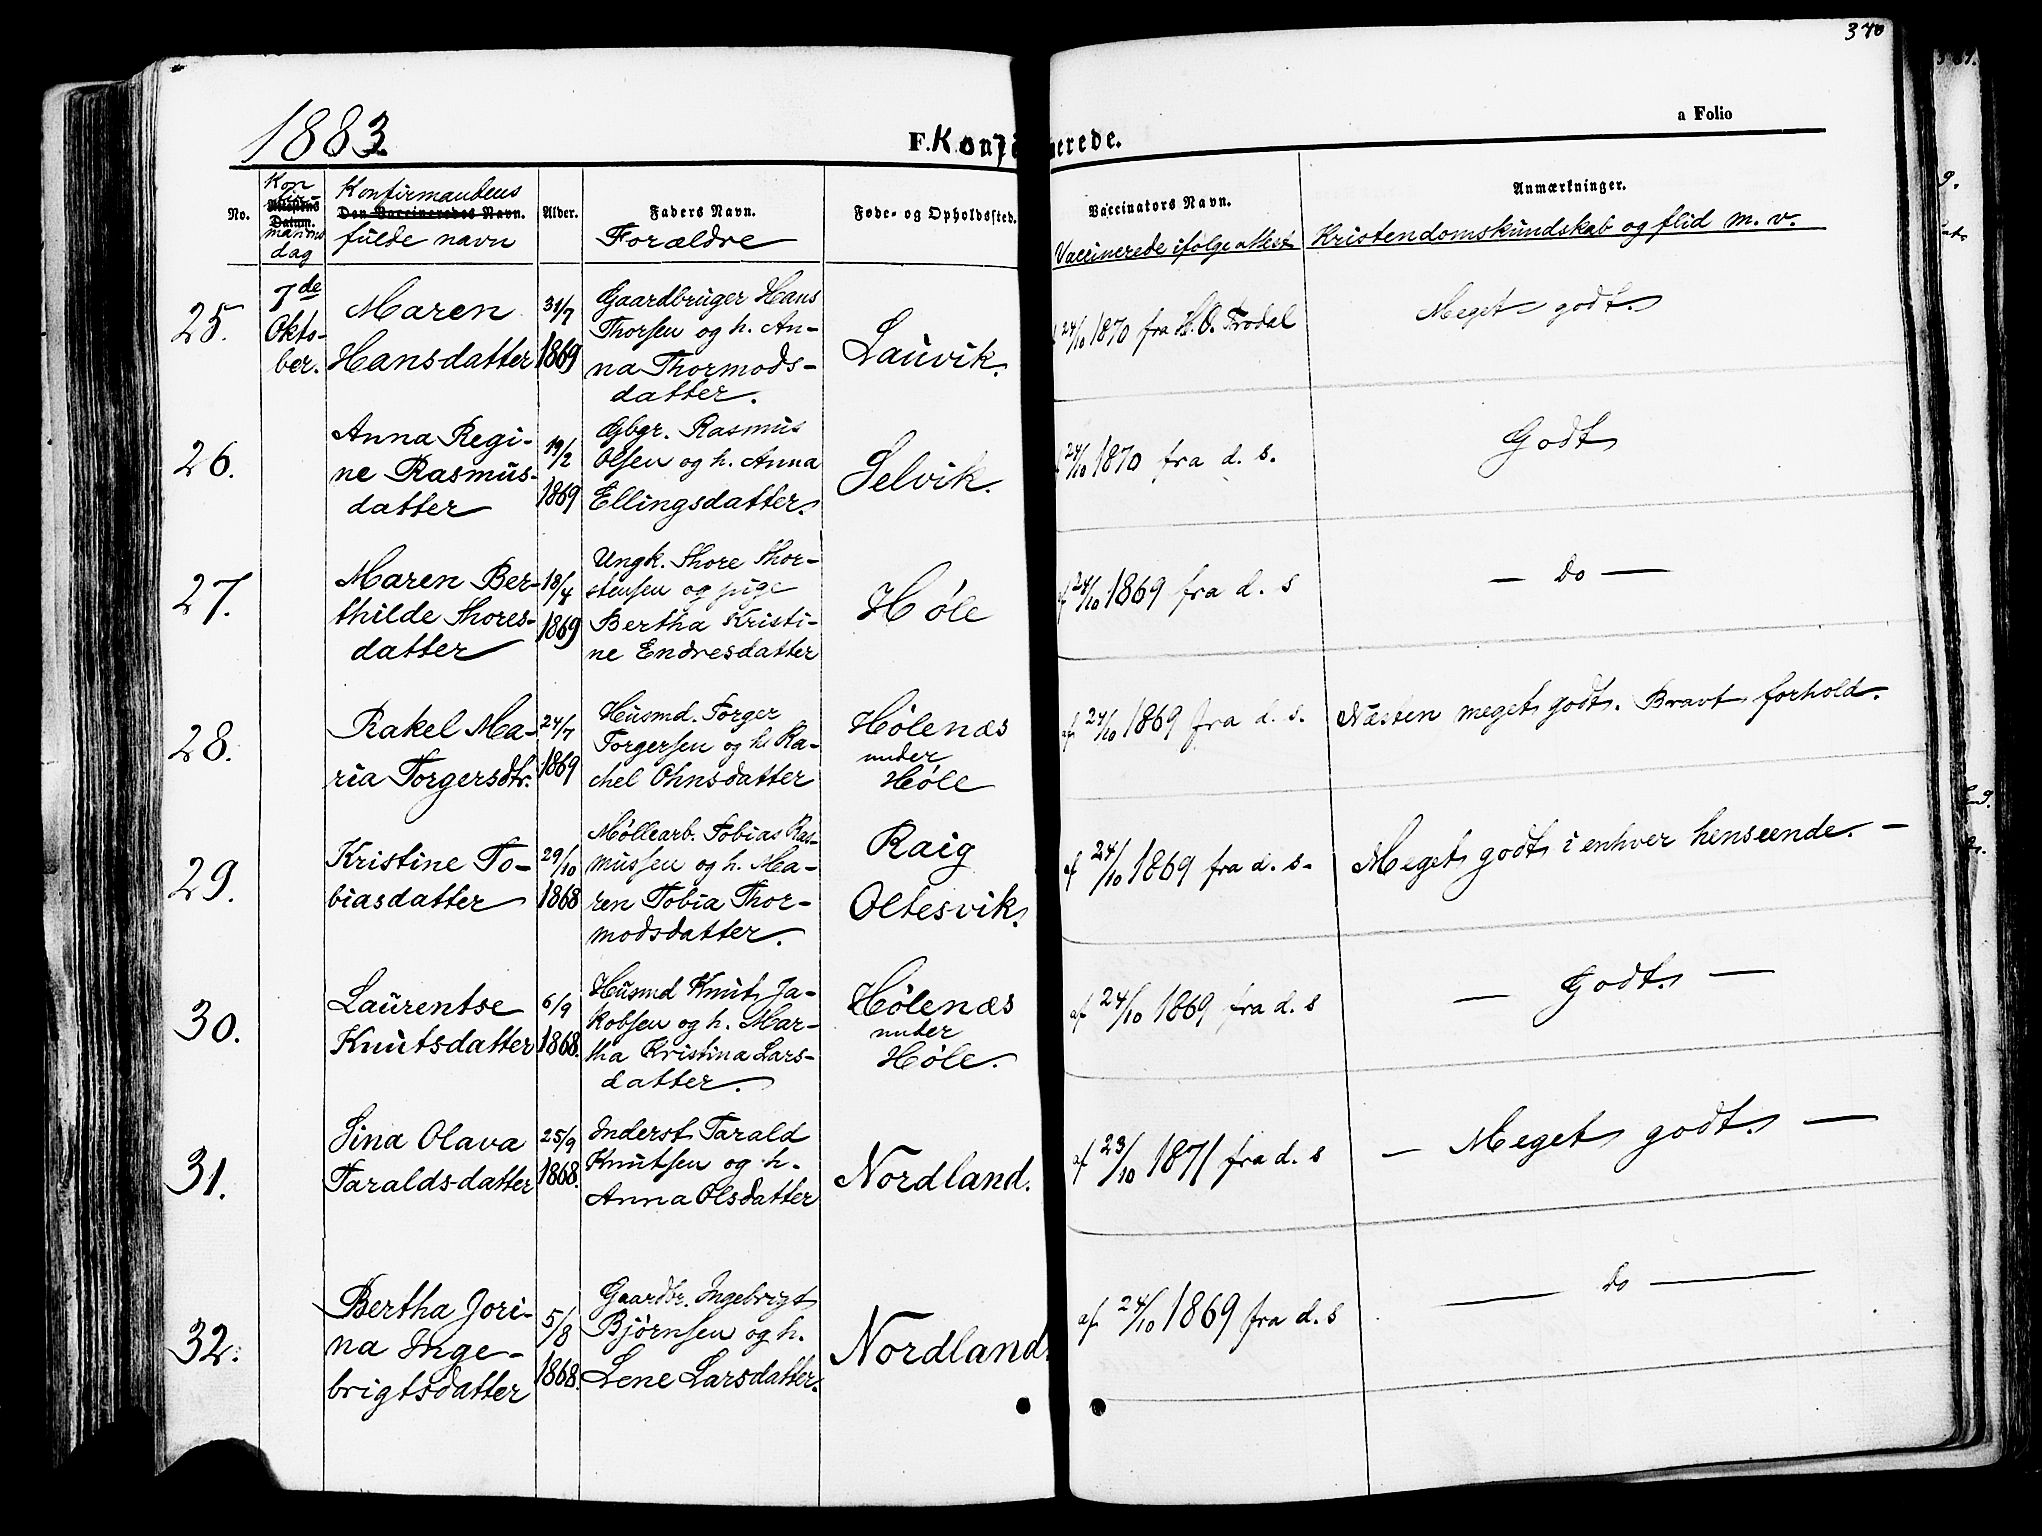 370
1883.
F. Konfirmerede.
a Folio
No.
Konfirmationsdag
Konfirmandens
Den Vaccineredes Navn.
fulde navn
Alder.
Faders Navn.
Forældre
Føde- og Opholdssted.
Vaccinators Navn.
Vaccinerede ifølge attest
Anmærkninger.
Kristendomskundskab og flid m. v.
25.
7de
Okto-
ber.
Maren
Hansdatter
31/7
1869
Gaardbruger Hans
Thorsen og h. An-
na Thormods-
datter.
Lauvik.
24/10 1870 fra H. O. Trodal
Meget godt.
26.
Anna Regi-
ne Rasmus-
datter
19/2
1869
Gbgr. Rasmus
Olsen og h. Anna
Ellingsdatter.
Selvik.
24/10 1870 fra d. s.
Godt
27.
Maren Ber-
thilde Thores-
datter
18/4
1869
Ungk. Thore Thor-
stensen og pige
Bertha Kristi-
ne Endresdatter
Høle
af 24/10 1869 fra d. s
— do —
28.
Rakel Ma-
ria Torgersdtr.
24/7
1869
Husmd. Torger
Torgersen og h. Ra-
chel Ohnsdatter
Hølenæs
under
Høle
af 24/10 1869 fra d. s.
Næsten meget godt. Bravt forhold.
29.
Kristine To-
biasdatter
29/10
1868
Møllearb. Tobias Ras-
mussen og h. Ma-
ren Tobia Thor-
modsdatter.
Raig
Oltesvik.
af 24/10 1869 fra d. s.
Meget godt i enhver henseende. —
30.
Laurentse
Knutsdatter
6/9
1868.
Husmd Knut Ja-
kobsen og h. Mar-
tha Kristina Lars-
datter.
Hølenæs
under
Høle.
af 24/10 1869 fra d. s
— Godt. —
31.
Sina Olava
Taraldsdatter
25/9
1868.
Inderst Tarald
Knutsen og h.
Anna Olsdatter
Nordland.
af 23/10 1871 fra d. s
— Meget godt. —
32.
Bertha Jori-
na Inge-
brigtsdatter
5/8
1868.
Gaardbr. Ingebrigt
Bjørnsen og h.
Lene Larsdatter.
Nordland.
af 24/10 1869 fra d. s
— do —